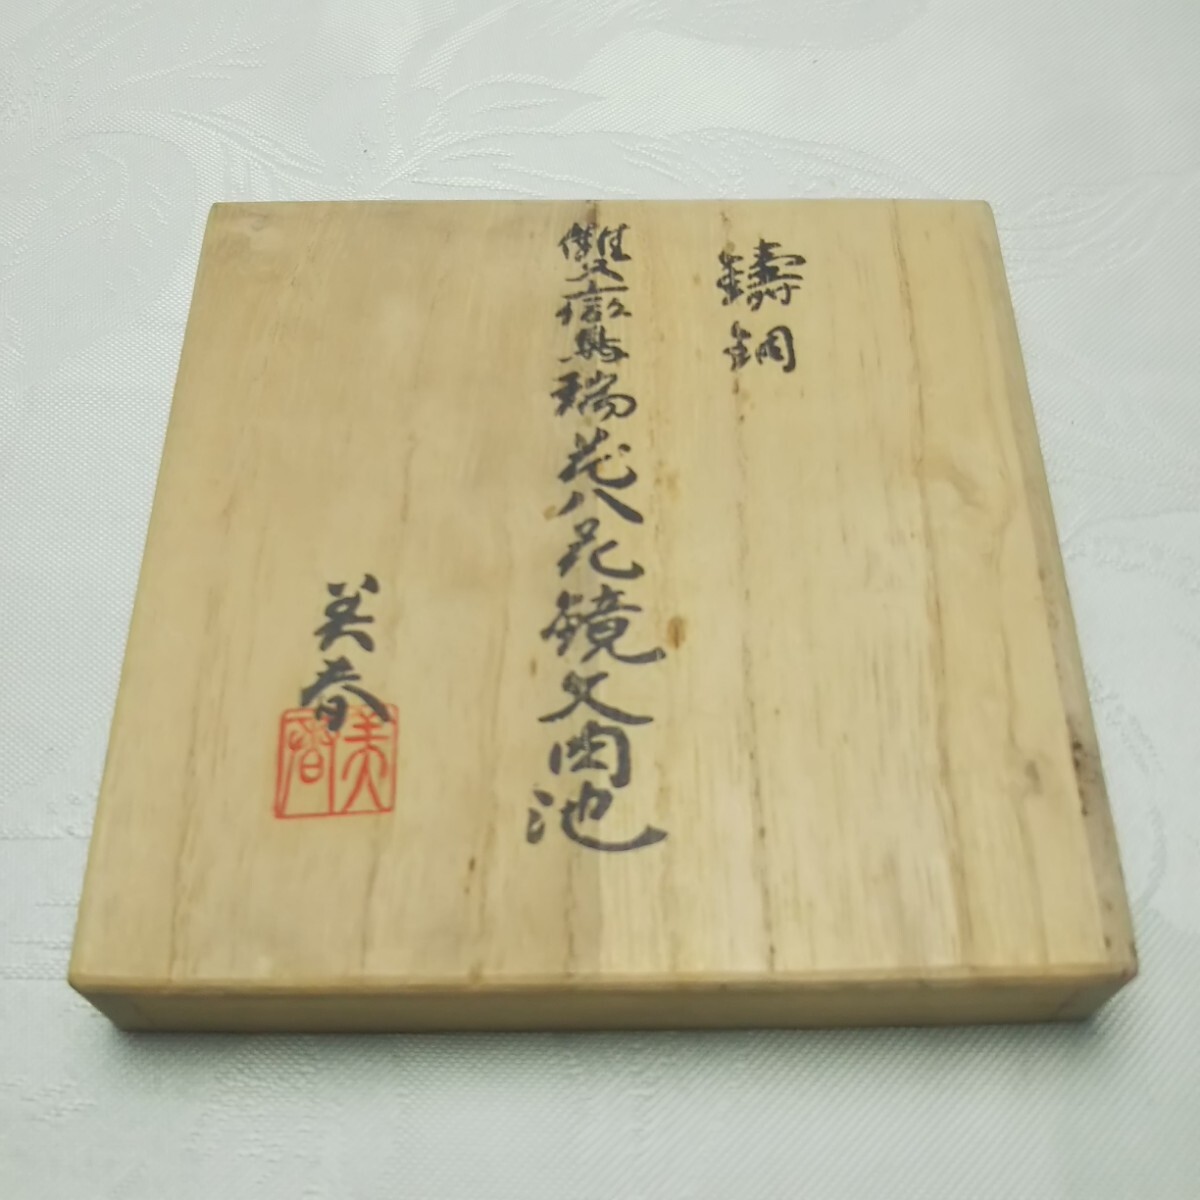 鋳銅
雙鸞瑞花八花鏡文肉池
美春
美春